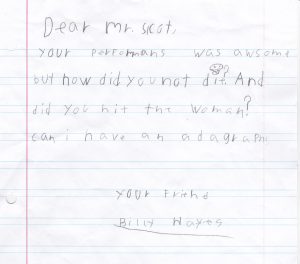 Dear mr. scot,
your performans was awsome
but how did you not die? And
did you hit the woman?
can i have an adagraph
your friend
Billy Hayes